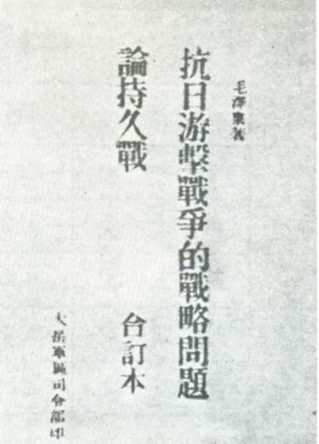 毛澤東著
抗日游擊戰爭的戰略問題
論持久戰 合訂本
太岳軍區司令部印